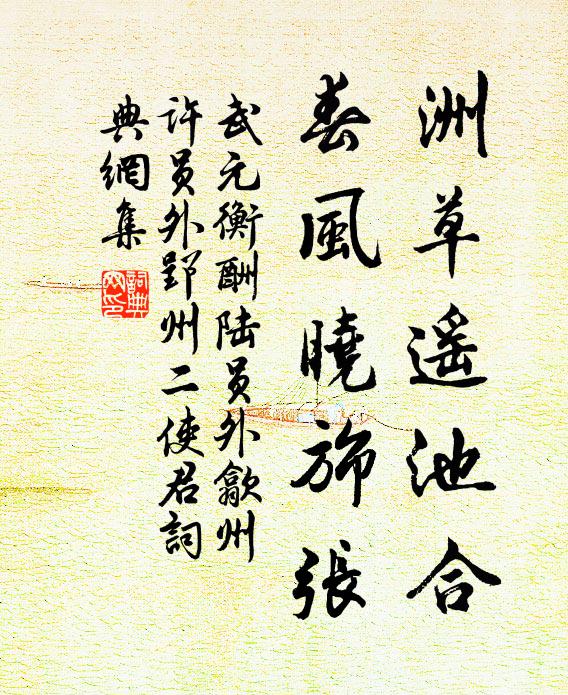 洲草遥池合
春風曉旆張
武元衡酬陸員外歙州
許員外郢州二使君詞
典網集
詞典網印